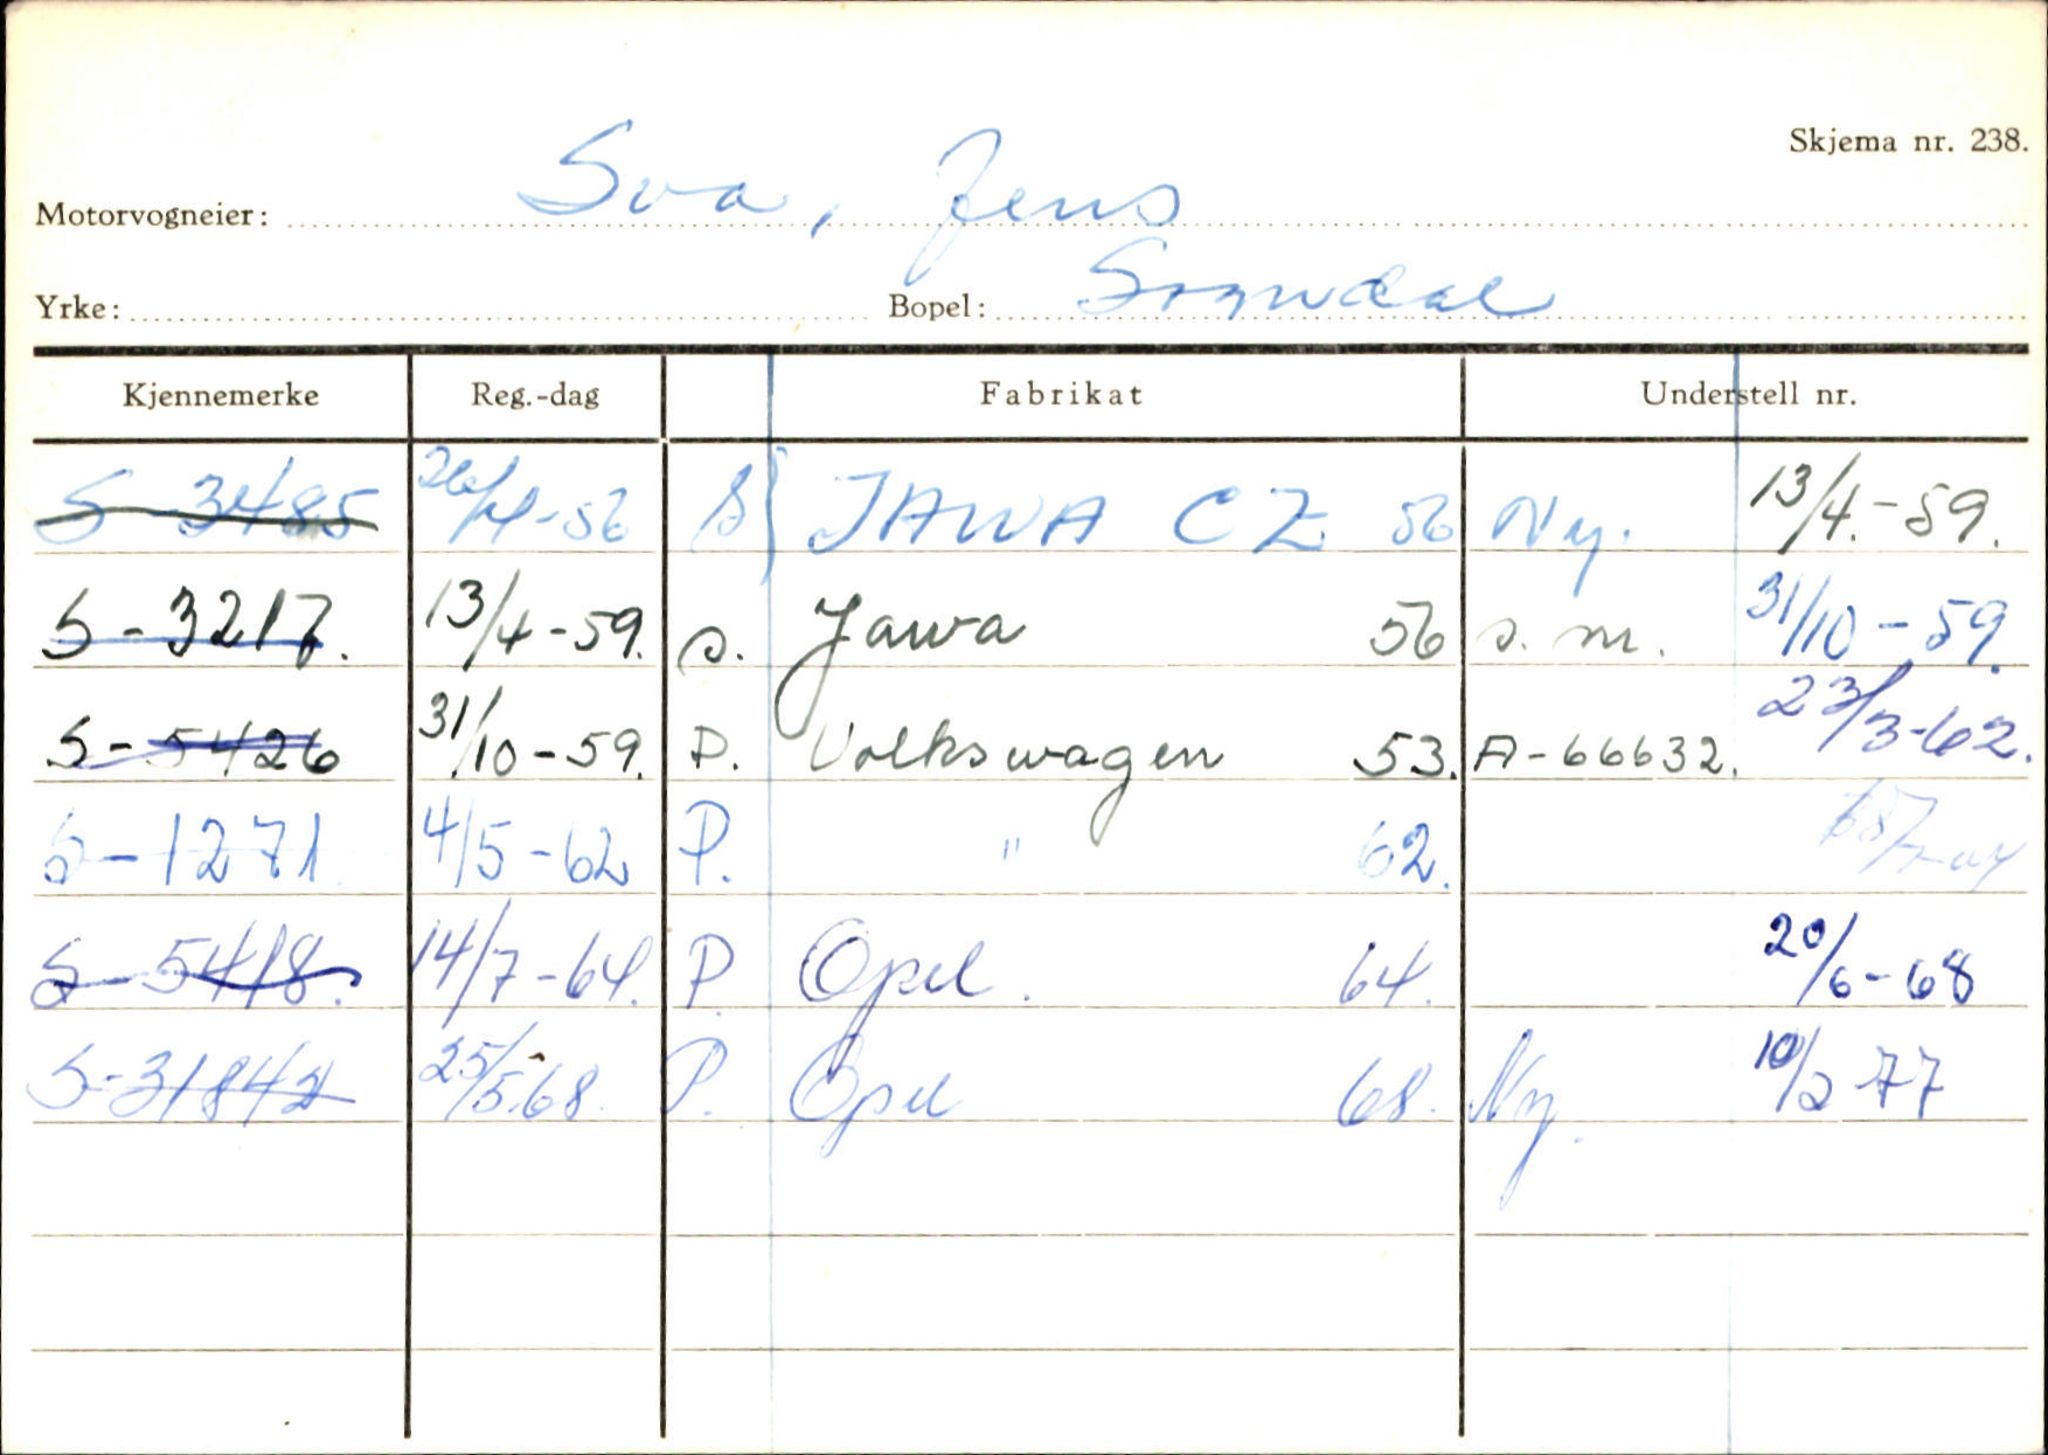 Skjema nr. 238.
Motorvogneier: Sva, Jens
Yrke: Bopel: Sogndal
Kjennemerke Reg.-dag Fabrikat Understell nr.
S-3485 26/4-56 S JAWA CZ 56 Ny. 13/4.-59.
S-3217. 13/4-59. s. Jawa 56 s. m. 31/10-59.
S-5426 31/10-59. P. Volkswagen 53. A-66632. 23/3-62.
S-1271 4/5-62 P. " 62.
S-5418. 14/7-64. P Opel. 64. 20/6-68
S-31842 25/5-68. P. Opel 68. Ny. 10/2-77